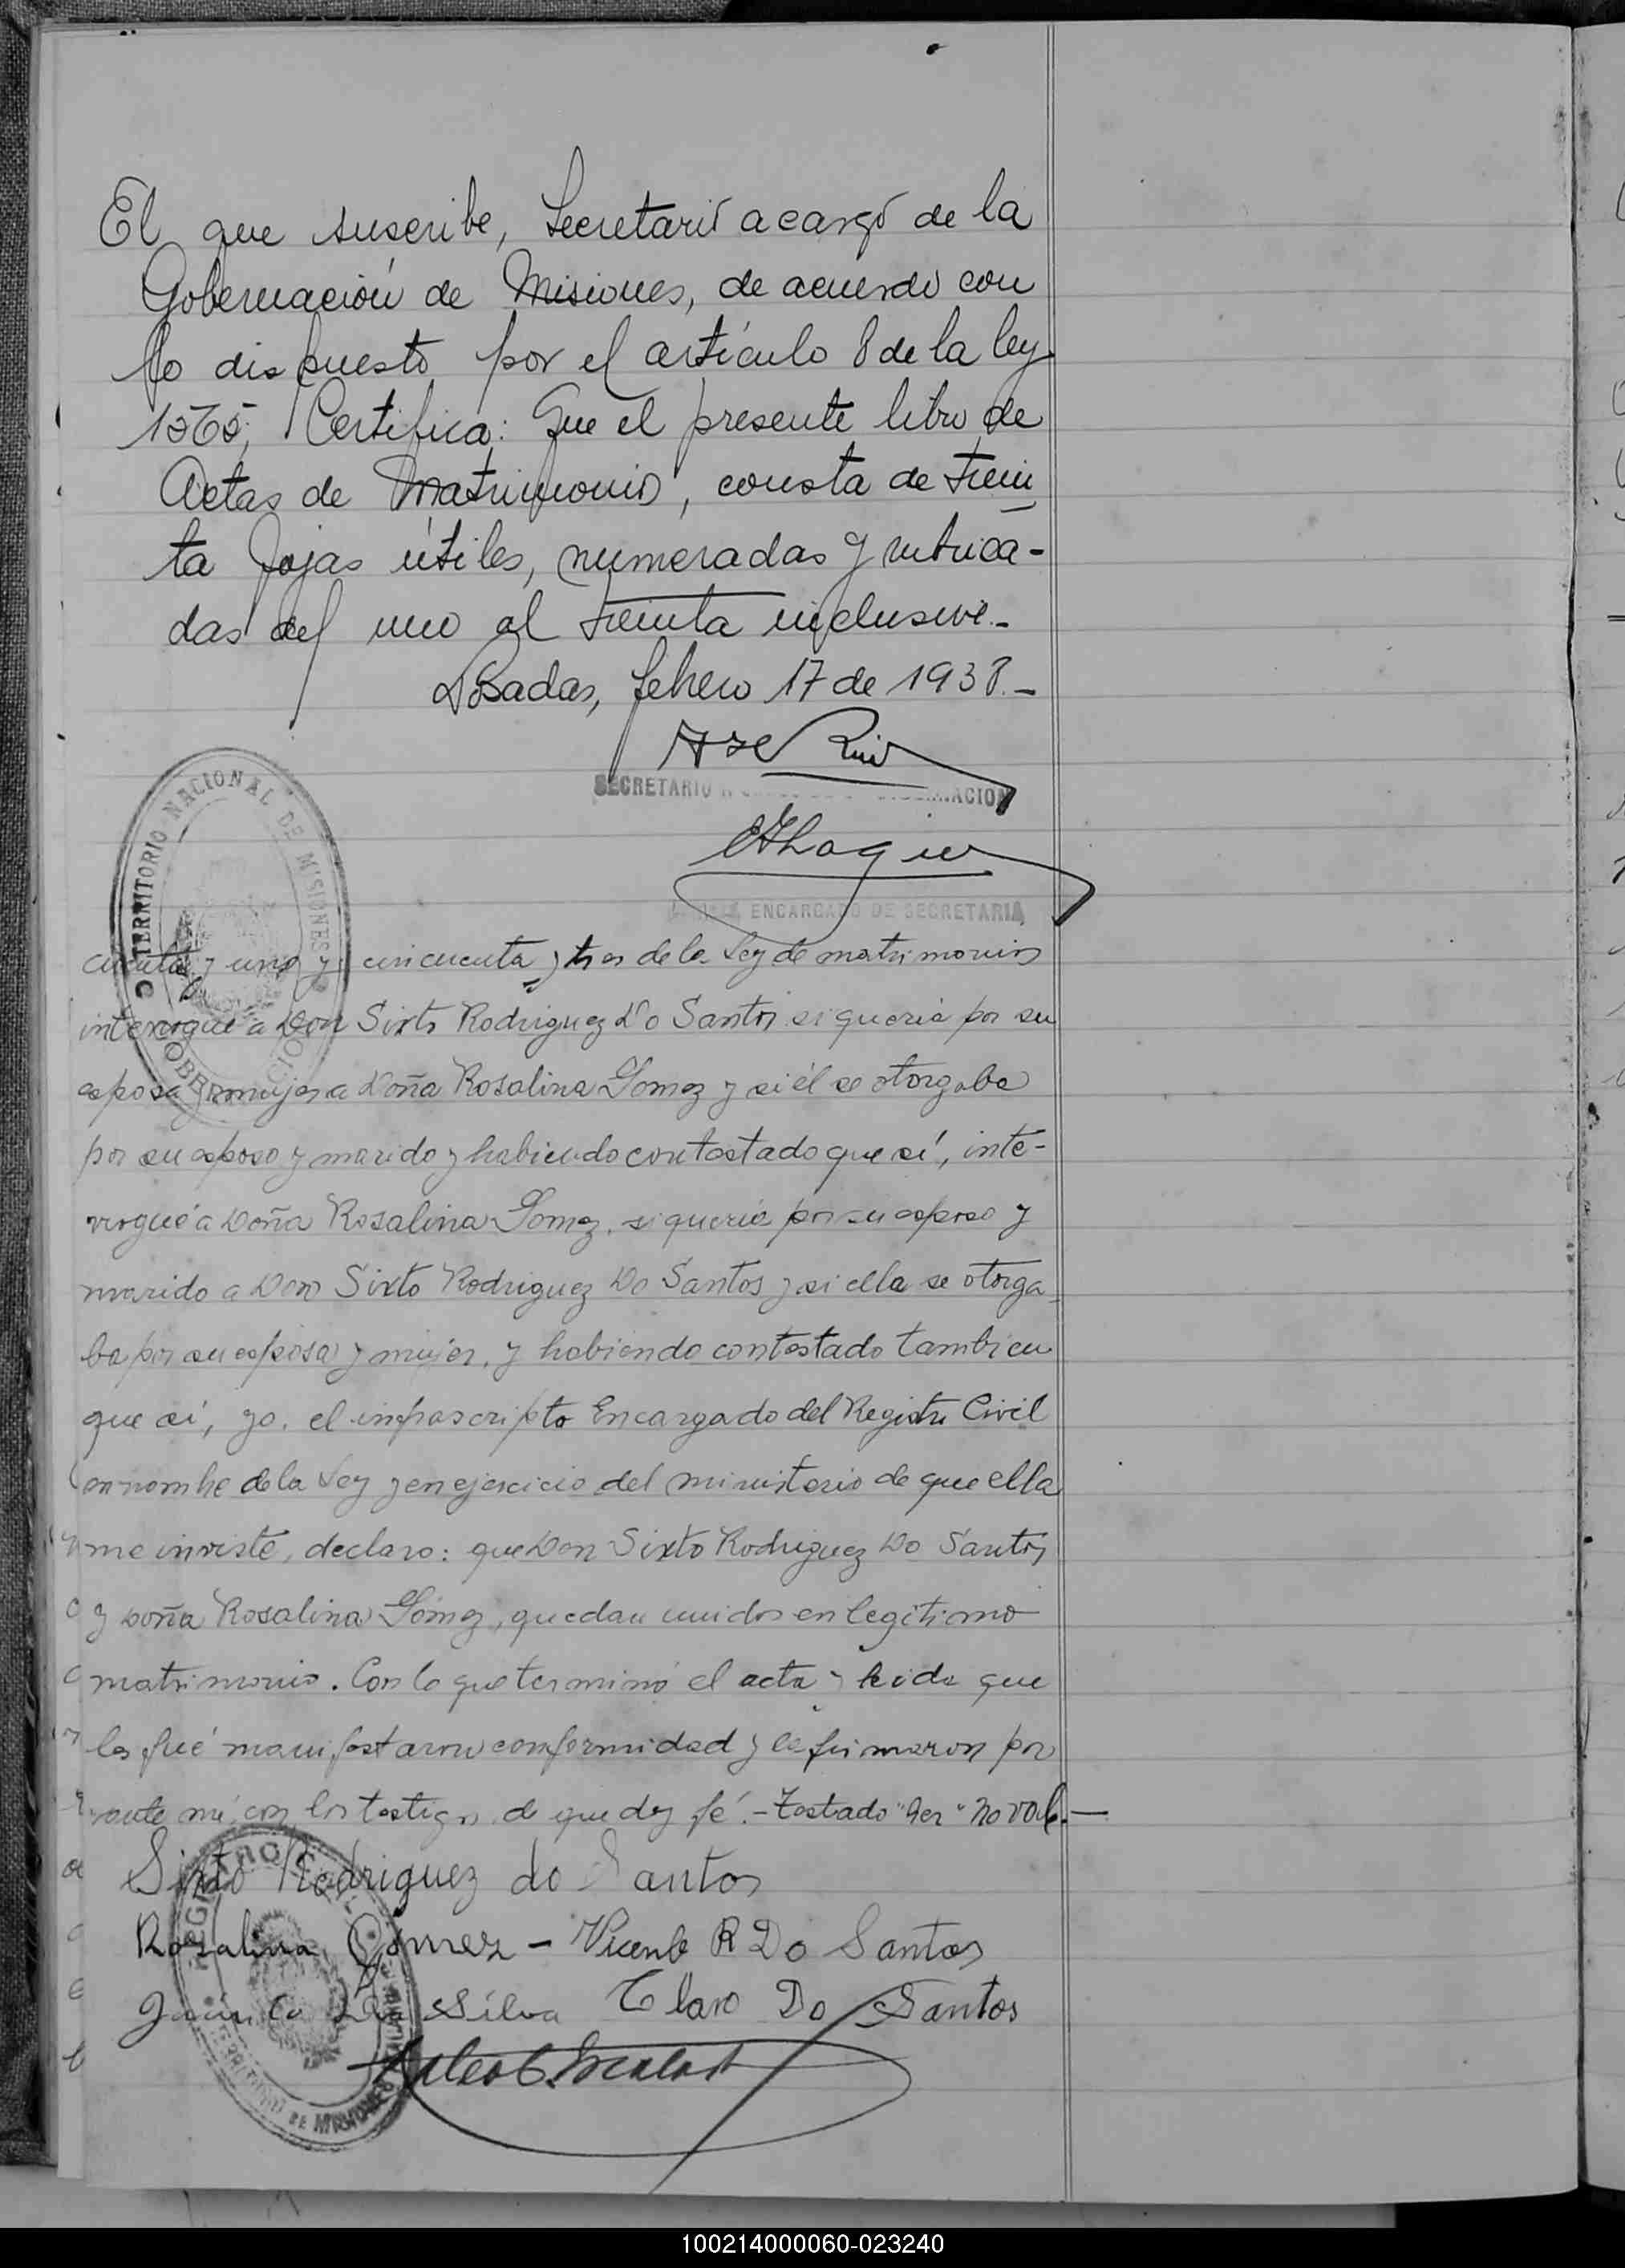 El que suscribe, Secretario a cargo de la
Gobernación de Misiones, de acuerdo con
lo dispuesto por el artículo 8 de la ley
1565, Certifica: Que el presente libro de
Actas de Matrimonio, consta de trein
ta fojas útiles, numeradas y rubrica-
das del uno al treinta inclusive.-
Posadas, febrero 17 de 1938.-
SECRETARIO A CARGO DE LA GOBERNACION
ENCARGADO DE SECRETARIA
TERRITORIO NACIONAL DE MISIONES
GOBERNACION
cuenta y uno y cincuenta y tres de la Ley de matrimonios
interrogué a Don Sixto Rodriguez Do Santos si queria por su
esposa y mujer a Doña Rosalina Gomez y si él se otorgaba
por su esposo y marido y habiendo contestado que sí, inte-
rrogué a Doña Rosalina Gomez, si queria por su esposo y
marido a Don Sixto Rodriguez Do Santos y si ella se otorga_
ba por su esposa y mujer, y habiendo contestado tambien
que sí, yo, el infrascripto Encargado del Registro Civil
en nombre de la Ley y en ejercicio del ministerio de que ella
me inviste, declaro: que Don Sixto Rodriguez Do Santos
y doña Rosalina Gómez, quedan unidos en legítimo
matrimonio. Con lo que terminó el acta y leida que
les fué manifestaron conformidad y la firmaron por
ante mí, con los testigos de que doy fé.- Testado "ser" no vale.—
Sixto Rodriguez do Santos
Rosalina Gómez - Vicente R Do Santos
Da Silva Claro Do Santos
REGISTRO CIVIL
TERRITORIO DE MISIONES
100214000060-023240